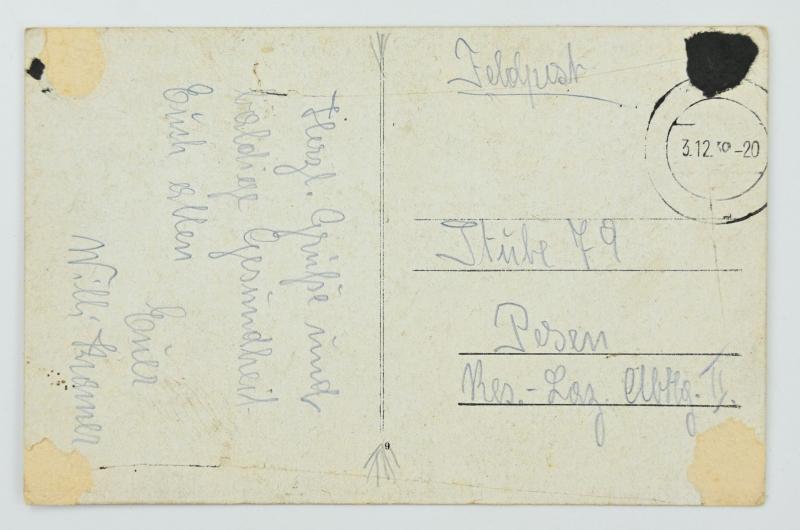 Herzl. Grüße und
baldige Gesundheit
Euch allen
Euer
Willi Kramer
Feldpost
3.12.39-20
Stube 79
Posen
Res.-Laz. Abtlg. II.
9